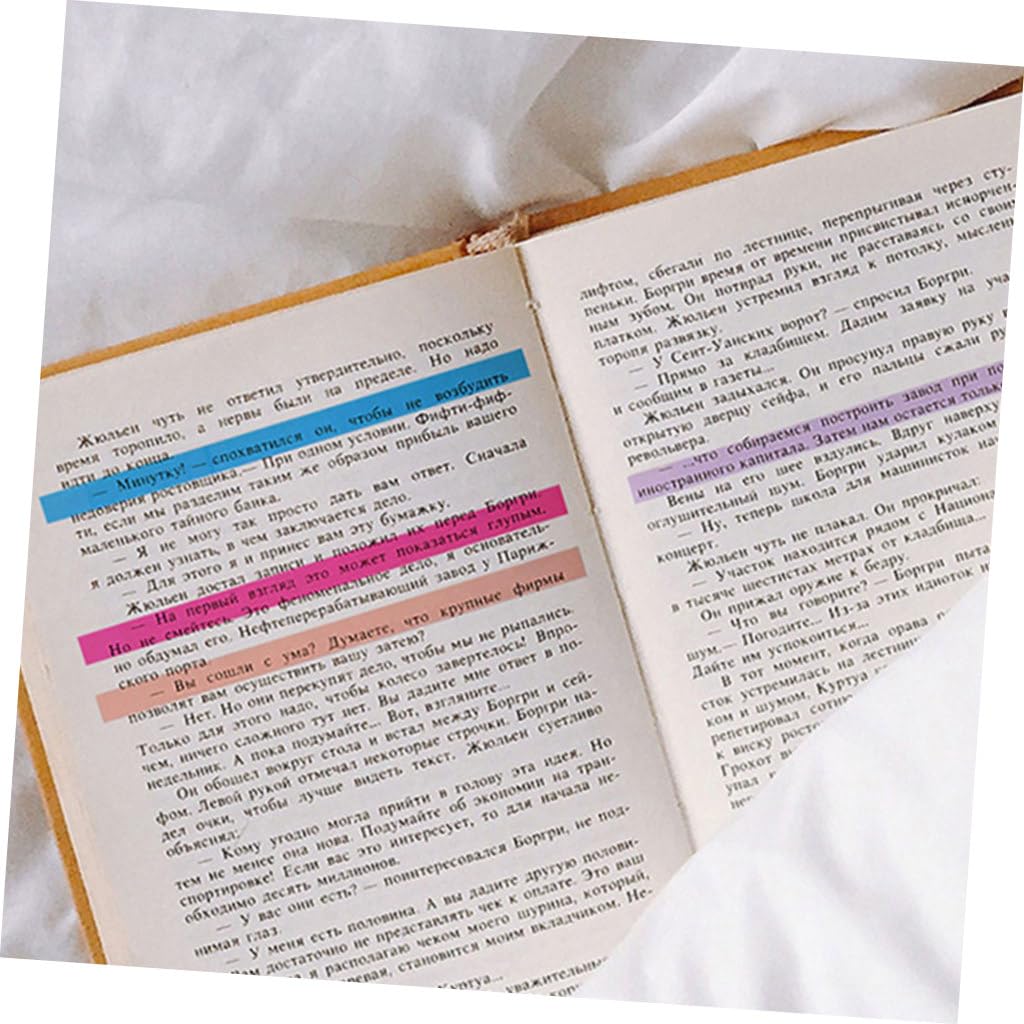 Жюльен чуть не ответил утвердительно, поскольку
время торопило, а нервы были на пределе. Но надо
идти до конца.
— Минутку! — спохватился он, чтобы не возбудить
недоверия ростовщика.— При одном условии. Фифти-фиф-
ти, если мы разделим таким же образом прибыль вашего
маленького тайного банка.
— Я не могу так просто дать вам ответ. Сначала
я должен узнать, в чем заключается дело.
— Для этого я и принес вам эту бумажку.
Жюльен достал записи и положил их перед Боргри.
— На первый взгляд это может показаться глупым.
Но не смейтесь. Это феноменальное дело, я основатель-
но обдумал его. Нефтеперерабатывающий завод у Париж-
ского порта.
— Вы сошли с ума? Думаете, что крупные фирмы
позволят вам осуществить вашу затею?
— Нет. Но они перекупят дело, чтобы мы не рыпались.
Только для этого надо, чтобы колесо завертелось! Впро-
чем, ничего сложного тут нет. Вы дадите мне ответ в по-
недельник. А пока подумайте... Вот, взгляните...
Он обошел вокруг стола и встал между Боргри и сей-
фом. Левой рукой отмечал некоторые строчки. Боргри на-
дел очки, чтобы лучше видеть текст. Жюльен суетливо
объяснял:
— Кому угодно могла прийти в голову эта идея. Но
тем не менее она нова. Подумайте об экономии на тран-
спортировке! Если вас это интересует, то для начала не-
обходимо десять миллионов.
— У вас они есть? — поинтересовался Боргри, не под-
нимая глаз.
— У меня есть половина. А вы дадите другую полови-
Вам достаточно не представлять чек к оплате. Это ваш
я располагаю чеком моего шурина, который,
становится моим вкладчиком. Не-
Куртуа...
уважительным
лифтом, сбегали по лестнице, перепрыгивая через сту-
пеньки. Боргри время от времени присвистывал испорчен-
ным зубом. Он потирал руки, не расставаясь со своим
платком. Жюльен устремил взгляд к потолку, мысленно
торопя развязку.
— У Сент-Уанских ворот? — спросил Боргри.
— Прямо за кладбищем. Дадим заявку на уча
и сообщим в газеты...
Жюльен задыхался. Он просунул правую руку в
открытую дверцу сейфа, и его пальцы сжали ру
револьвера.
— ...что собираемся построить завод при по
иностранного капитала. Затем нам остается только
Вены на его шее вздулись. Вдруг наверху
оглушительный шум. Боргри ударил кулаком
— Ну, теперь школа для машинисток на
концерт.
Жюльен чуть не плакал. Он прокричал:
— Участок находится рядом с Национа
в тысяче шестистах метрах от кладбища...
Он прижал оружие к бедру.
— Что вы говорите? — Боргри пыта
— Погодите... Из-за этих идиоток н
шум.—
Дайте им успокоиться...
В тот момент, когда орава
сток устремилась на лестни
ком и шумом, Куртуа
репетировал сотн
к виску рост
Грохот в
упал
не